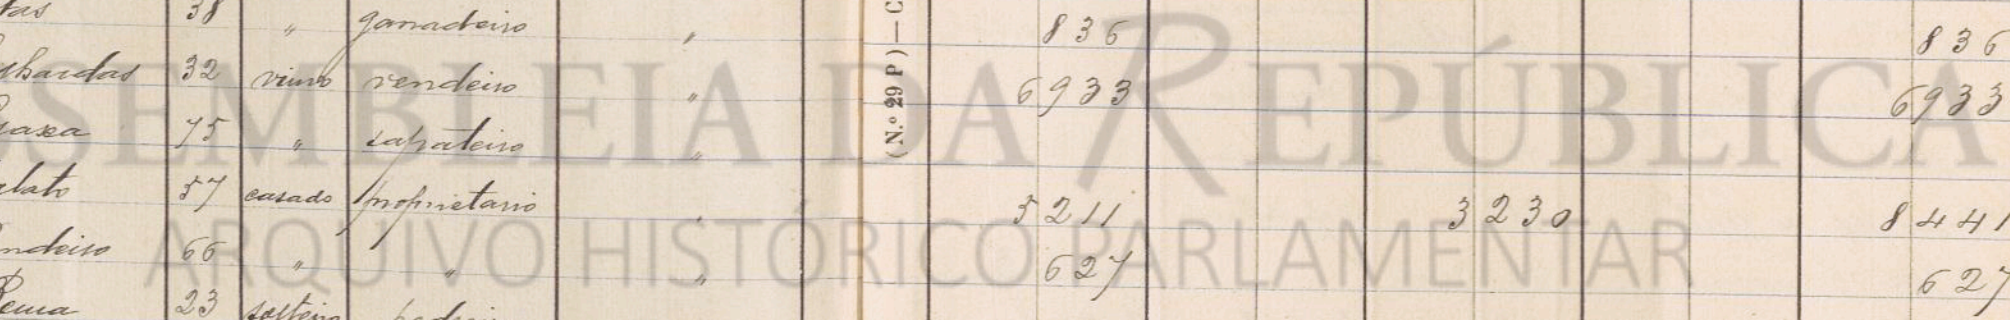 38 " ganadeiro " 836 836
32 viuvo rendeiro " 6933 6933
75 " sapateiro "
57 casado proprietario " 5211 3230 8441
66 " " " 627 627
23 solteiro
(N.º 29 P) — C
ASSEMBLEIA DA REPÚBLICA
ARQUIVO HISTÓRICO PARLAMENTAR